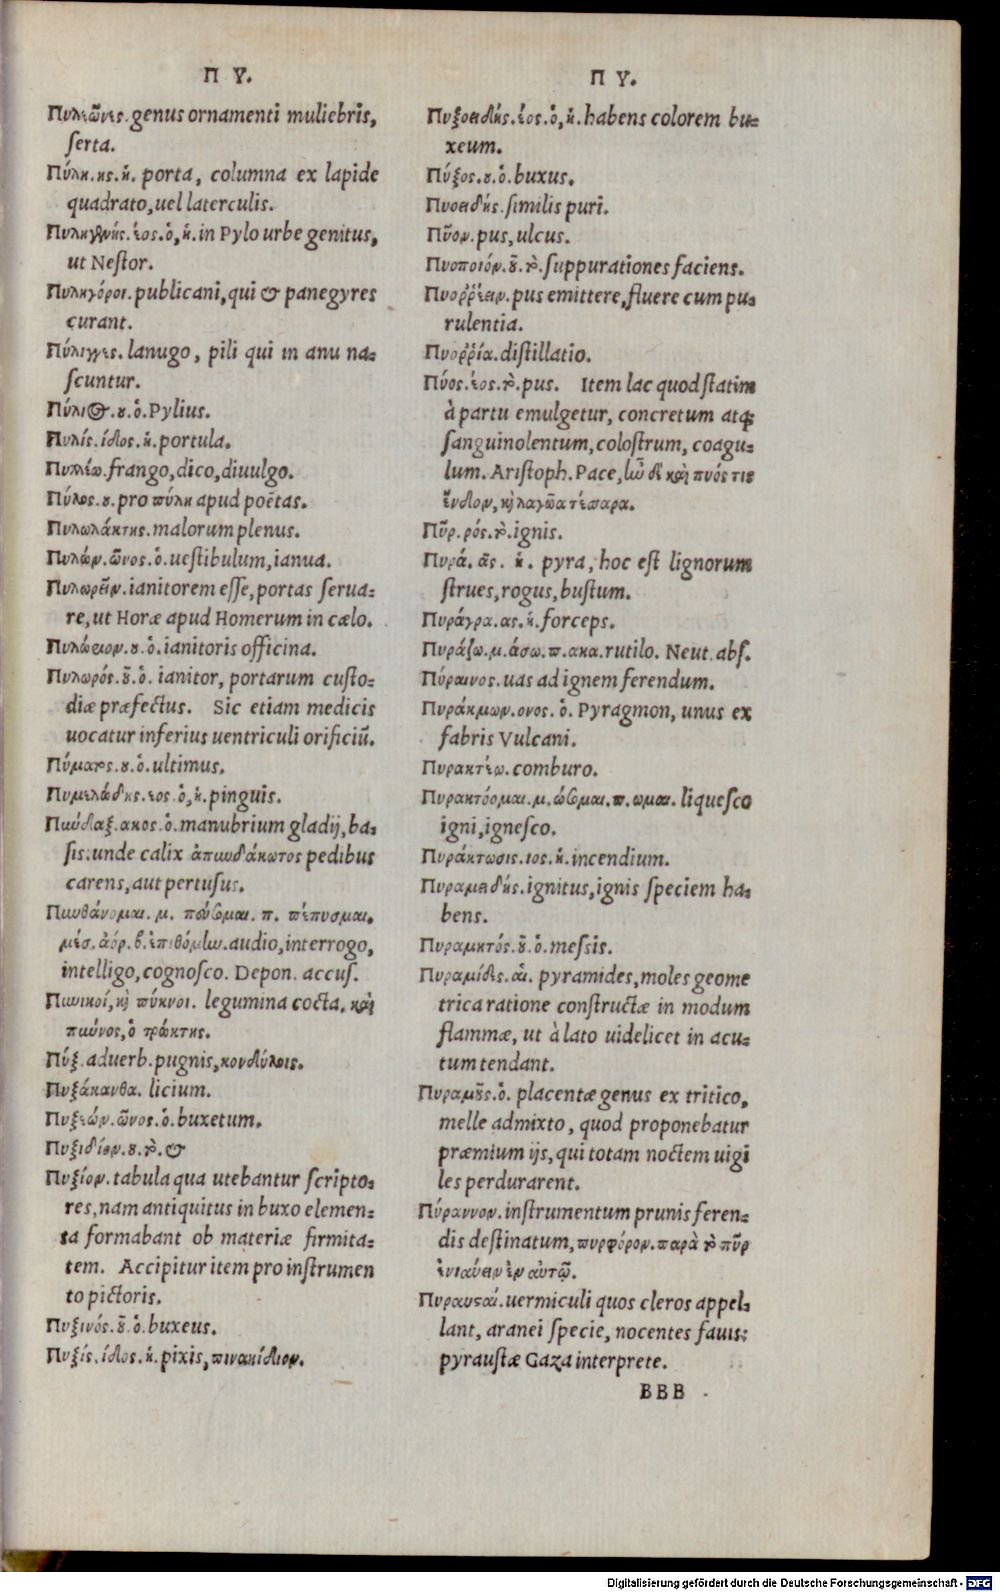 Π Υ.
Πυλεῶνες. genus ornamenti muliebris,
serta.
Πύλη. ης. ἡ. porta, columna ex lapide
quadrato, uel laterculis.
Πυληγενής. έος. ὁ, ἡ. in Pylo urbe genitus,
ut Nestor.
Πυληγόροι. publicani, qui & panegyres
curant.
Πύλιγγες. lanugo, pili qui in anu na=
scuntur.
Πύλιος. ου. ὁ. Pylius.
Πυλίς. ίδος. ἡ. portula.
frango, dico, diuulgo.
Πύλος. ου. pro πύλη apud poëtas.
malorum plenus.
Πυλών. ῶνος. ὁ. uestibulum, ianua.
Πυλωρεῖν. ianitorem esse, portas serua=
re, ut Horæ apud Homerum in cælo.
ου. ὁ. ianitoris officina.
Πυλωρός. οῦ. ὁ. ianitor, portarum custo=
diæ præfectus. Sic etiam medicis
uocatur inferius uentriculi orificiũ.
Πύματος. ου. ὁ. ultimus.
Πυμελώδης. εος. ὁ, ἡ. pinguis.
Πύνδαξ. ακος. ὁ. manubrium gladij, ba=
sis. unde calix ἀπυνδάκωτος pedibus
carens, aut pertusus.
Πυνθάνομαι. μ. πεύσομαι. π. πέπυσμαι.
μέσ. ἀόρ. β. ἐπυθόμην. audio, interrogo,
intelligo, cognosco. Depon. accus.
legumina cocta. καὶ
Πύξ. aduerb. pugnis, κονδύλοις.
Πυξάκανθα. licium.
Πυξεών. ῶνος. ὁ. buxetum.
Πυξιδίον. ου. τὸ. &
Πυξίον. tabula qua utebantur scripto=
res, nam antiquitus in buxo elemen=
ta formabant ob materiæ firmita=
tem. Accipitur item pro instrumen
to pictoris.
Πυξινός. οῦ. ὁ. buxeus.
Πυξίς. ίδος. ἡ. pixis, πινακίδιον.
Π Υ.
Πυξοειδής. έος. ὁ, ἡ. habens colorem bu=
xeum.
Πύξος. ου. ὁ. buxus.
Πυοειδής. similis puri.
Πῦον. pus, ulcus.
Πυοποιόν. οῦ. τὸ. suppurationes faciens.
Πυοῤῥέειν. pus emittere, fluere cum pu=
rulentia.
Πυοῤῥία. distillatio.
Πύος. έος. τὸ. pus. Item lac quod statim
à partu emulgetur, concretum atq;
sanguinolentum, colostrum, coagu=
lum. Aristoph. Pace, ἦν δὲ καὶ πυός τις
ἔνδον, καὶ λαγῶα τέσσαρα.
Πῦρ. ρός. τὸ. ignis.
Πυρά. ᾶς. ἡ. pyra, hoc est lignorum
strues, rogus, bustum.
Πυράγρα. ας. ἡ. forceps.
Πυράζω. μ. άσω. π. ακα. rutilo. Neut. abs.
Πύραινος. uas ad ignem ferendum.
Πυράκμων. ονος. ὁ. Pyragmon, unus ex
fabris Vulcani.
Πυρακτέω. comburo.
Πυρακτόομαι. μ. ώσομαι. π. ωμαι. liquesco
igni, ignesco.
Πυράκτωσις. ιος. ἡ. incendium.
Πυραμειδής. ignitus, ignis speciem ha=
bens.
Πυραμητός. οῦ. ὁ. messis.
Πυραμίδες. αἱ. pyramides, moles geome
trica ratione constructæ in modum
flammæ, ut à lato uidelicet in acu=
tum tendant.
Πυραμοῦς. ὁ. placentæ genus ex tritico,
melle admixto, quod proponebatur
præmium ijs, qui totam noctem uigi
les perdurarent.
Πύραννον. instrumentum prunis feren=
dis destinatum, πυρφόρον. παρὰ τὸ πῦρ
ἐναύειν ἐν αὐτῷ.
Πυραυσταί. uermiculi quos cleros appel=
lant, aranei specie, nocentes fauis:
pyraustæ Gaza interprete.
BBB
Digitalisierung gefördert durch die Deutsche Forschungsgemeinschaft - DFG